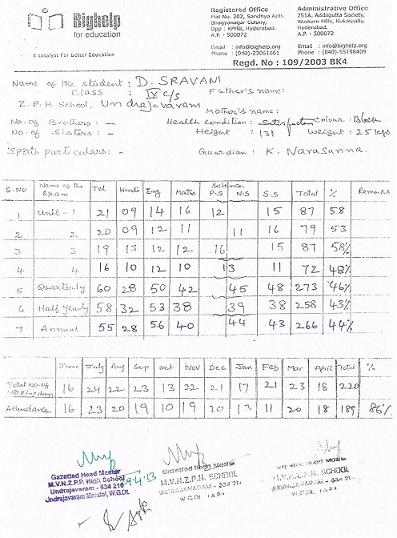 Bighelp
for education
A Catalyst For Better Education
Registered Office
Flat No. 202, Sandhya Apts.
Bhagyanagar Colony,
Opp : KPHB, Hyderabad.
A.P. - 500072
Email : info@bighelp.org
Phone : (040)-23061661
Administrative Office
251A, Addagutta Society,
Western Hills, Kukatpally,
Hyderabad,
A.P. - 500072
Email : info@bighelp.org
Phone : (040)-55198409
Regd. No : 109/2003 BK4
Name of the student : D. SRAVANI
Class : IV C/S Father's name:
Z.P.H School, Undrajavaram
Mother's name:
No. of Brothers : - Health condition : Satisfaction Colour : Black
No. of Sisters : - Height : 131 Weight : 25 kgs
Sports particulars : - Guardian : K. Narasanna
S.NO Name of the Exam Tel Hindi Eng Maths Science P.S N.S S.S Total % Remarks
1 Unit - 1 21 09 14 16 12 15 87 58
2 2 20 09 12 11 11 16 79 53
3 3 19 13 12 12 16 15 87 58%
4 4 16 10 12 10 13 11 72 48%
5 Quarterly 60 28 50 42 45 48 273 46%
6 Half yearly 58 32 53 38 39 38 258 43%
7 Annual 55 28 56 40 44 43 266 44%
June July Aug Sep Oct Nov Dec Jan Feb Mar April Total %
Total No. of working days 16 24 22 23 13 22 21 17 21 23 18 220
Attendance 16 23 20 19 10 19 20 13 11 20 18 189 86%
Gazetted Head Master
M.V.N.Z.P.P. High School
Undrajavaram - 534 216
Undrajavaram Mandal, W.G.Dt.
Gazetted Head Master
M.V.N.Z.P.H. SCHOOL
UNDRAJAVARAM - 534 216
M.V.N.Z.P.H. SCHOOL